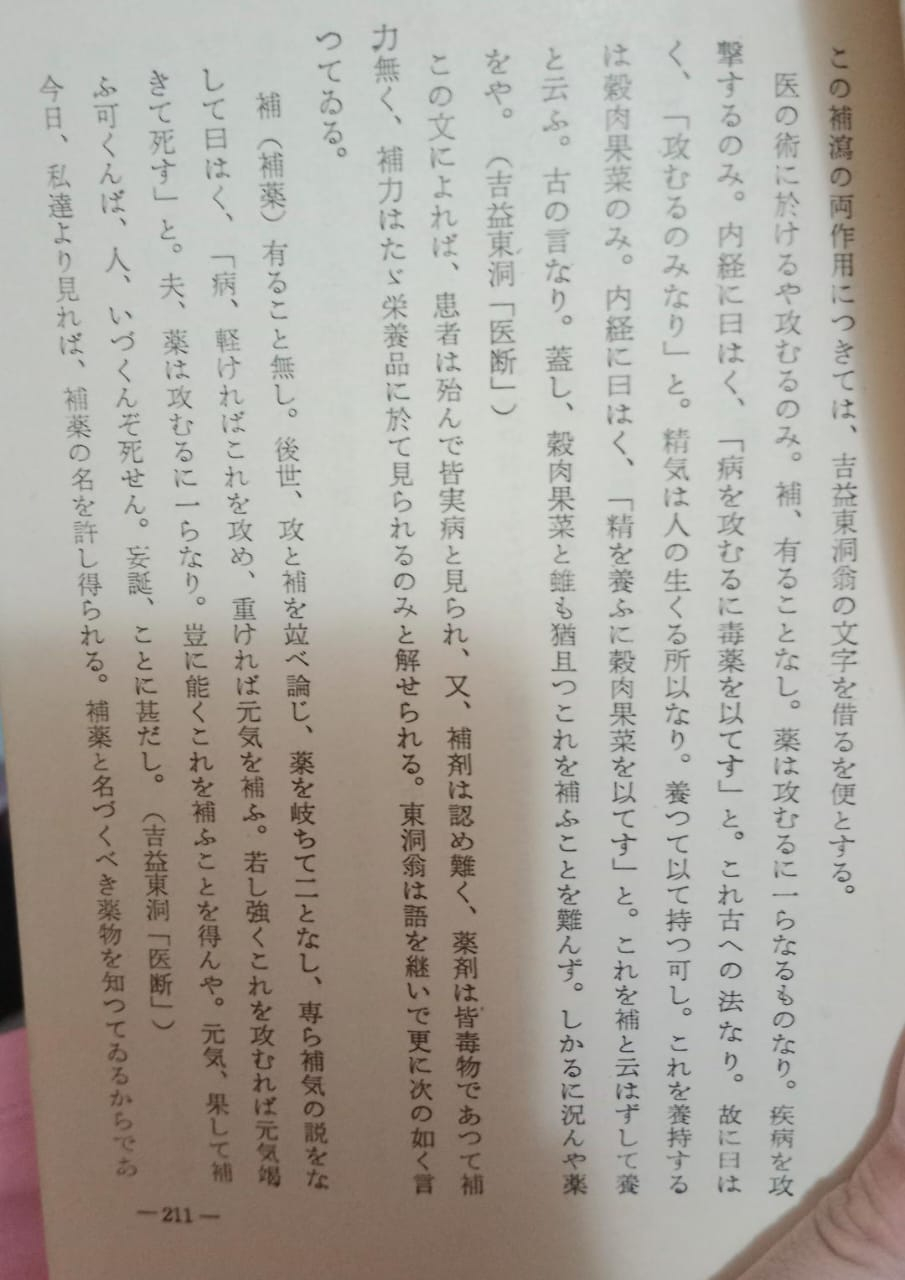 この補瀉の両作用につきては、吉益東洞翁の文字を借るを便とする。
医の術に於けるや攻むるのみ。補、有ることなし。薬は攻むるに一らなるものなり。疾病を攻
撃するのみ。内経に曰はく、「病を攻むるに毒薬を以てす」と。これ古への法なり。故に曰は
く、「攻むるのみなり」と。精気は人の生くる所以なり。養つて以て持つ可し。これを養持する
は穀肉果菜のみ。内経に曰はく、「精を養ふに穀肉果菜を以てす」と。これを補と云はずして養
と云ふ。古の言なり。蓋し、穀肉果菜と雖も猶且つこれを補ふことを難んず。しかるに況んや薬
をや。（吉益東洞「医断」）
この文によれば、患者は殆んで皆実病と見られ、又、補剤は認め難く、薬剤は皆毒物であつて補
力無く、補力はたゞ栄養品に於て見られるのみと解せられる。東洞翁は語を継いで更に次の如く言
つてゐる。
補（補薬）有ること無し。後世、攻と補を竝べ論じ、薬を岐ちて二となし、専ら補気の説をな
して曰はく、「病、軽ければこれを攻め、重ければ元気を補ふ。若し強くこれを攻むれば元気竭
きて死す」と。夫、薬は攻むるに一らなり。豈に能くこれを補ふことを得んや。元気、果して補
ふ可くんば、人、いづくんぞ死せん。妄誕、ことに甚だし。（吉益東洞「医断」）
今日、私達より見れば、補薬の名を許し得られる。補薬と名づくべき薬物を知つてゐるからであ
—211—